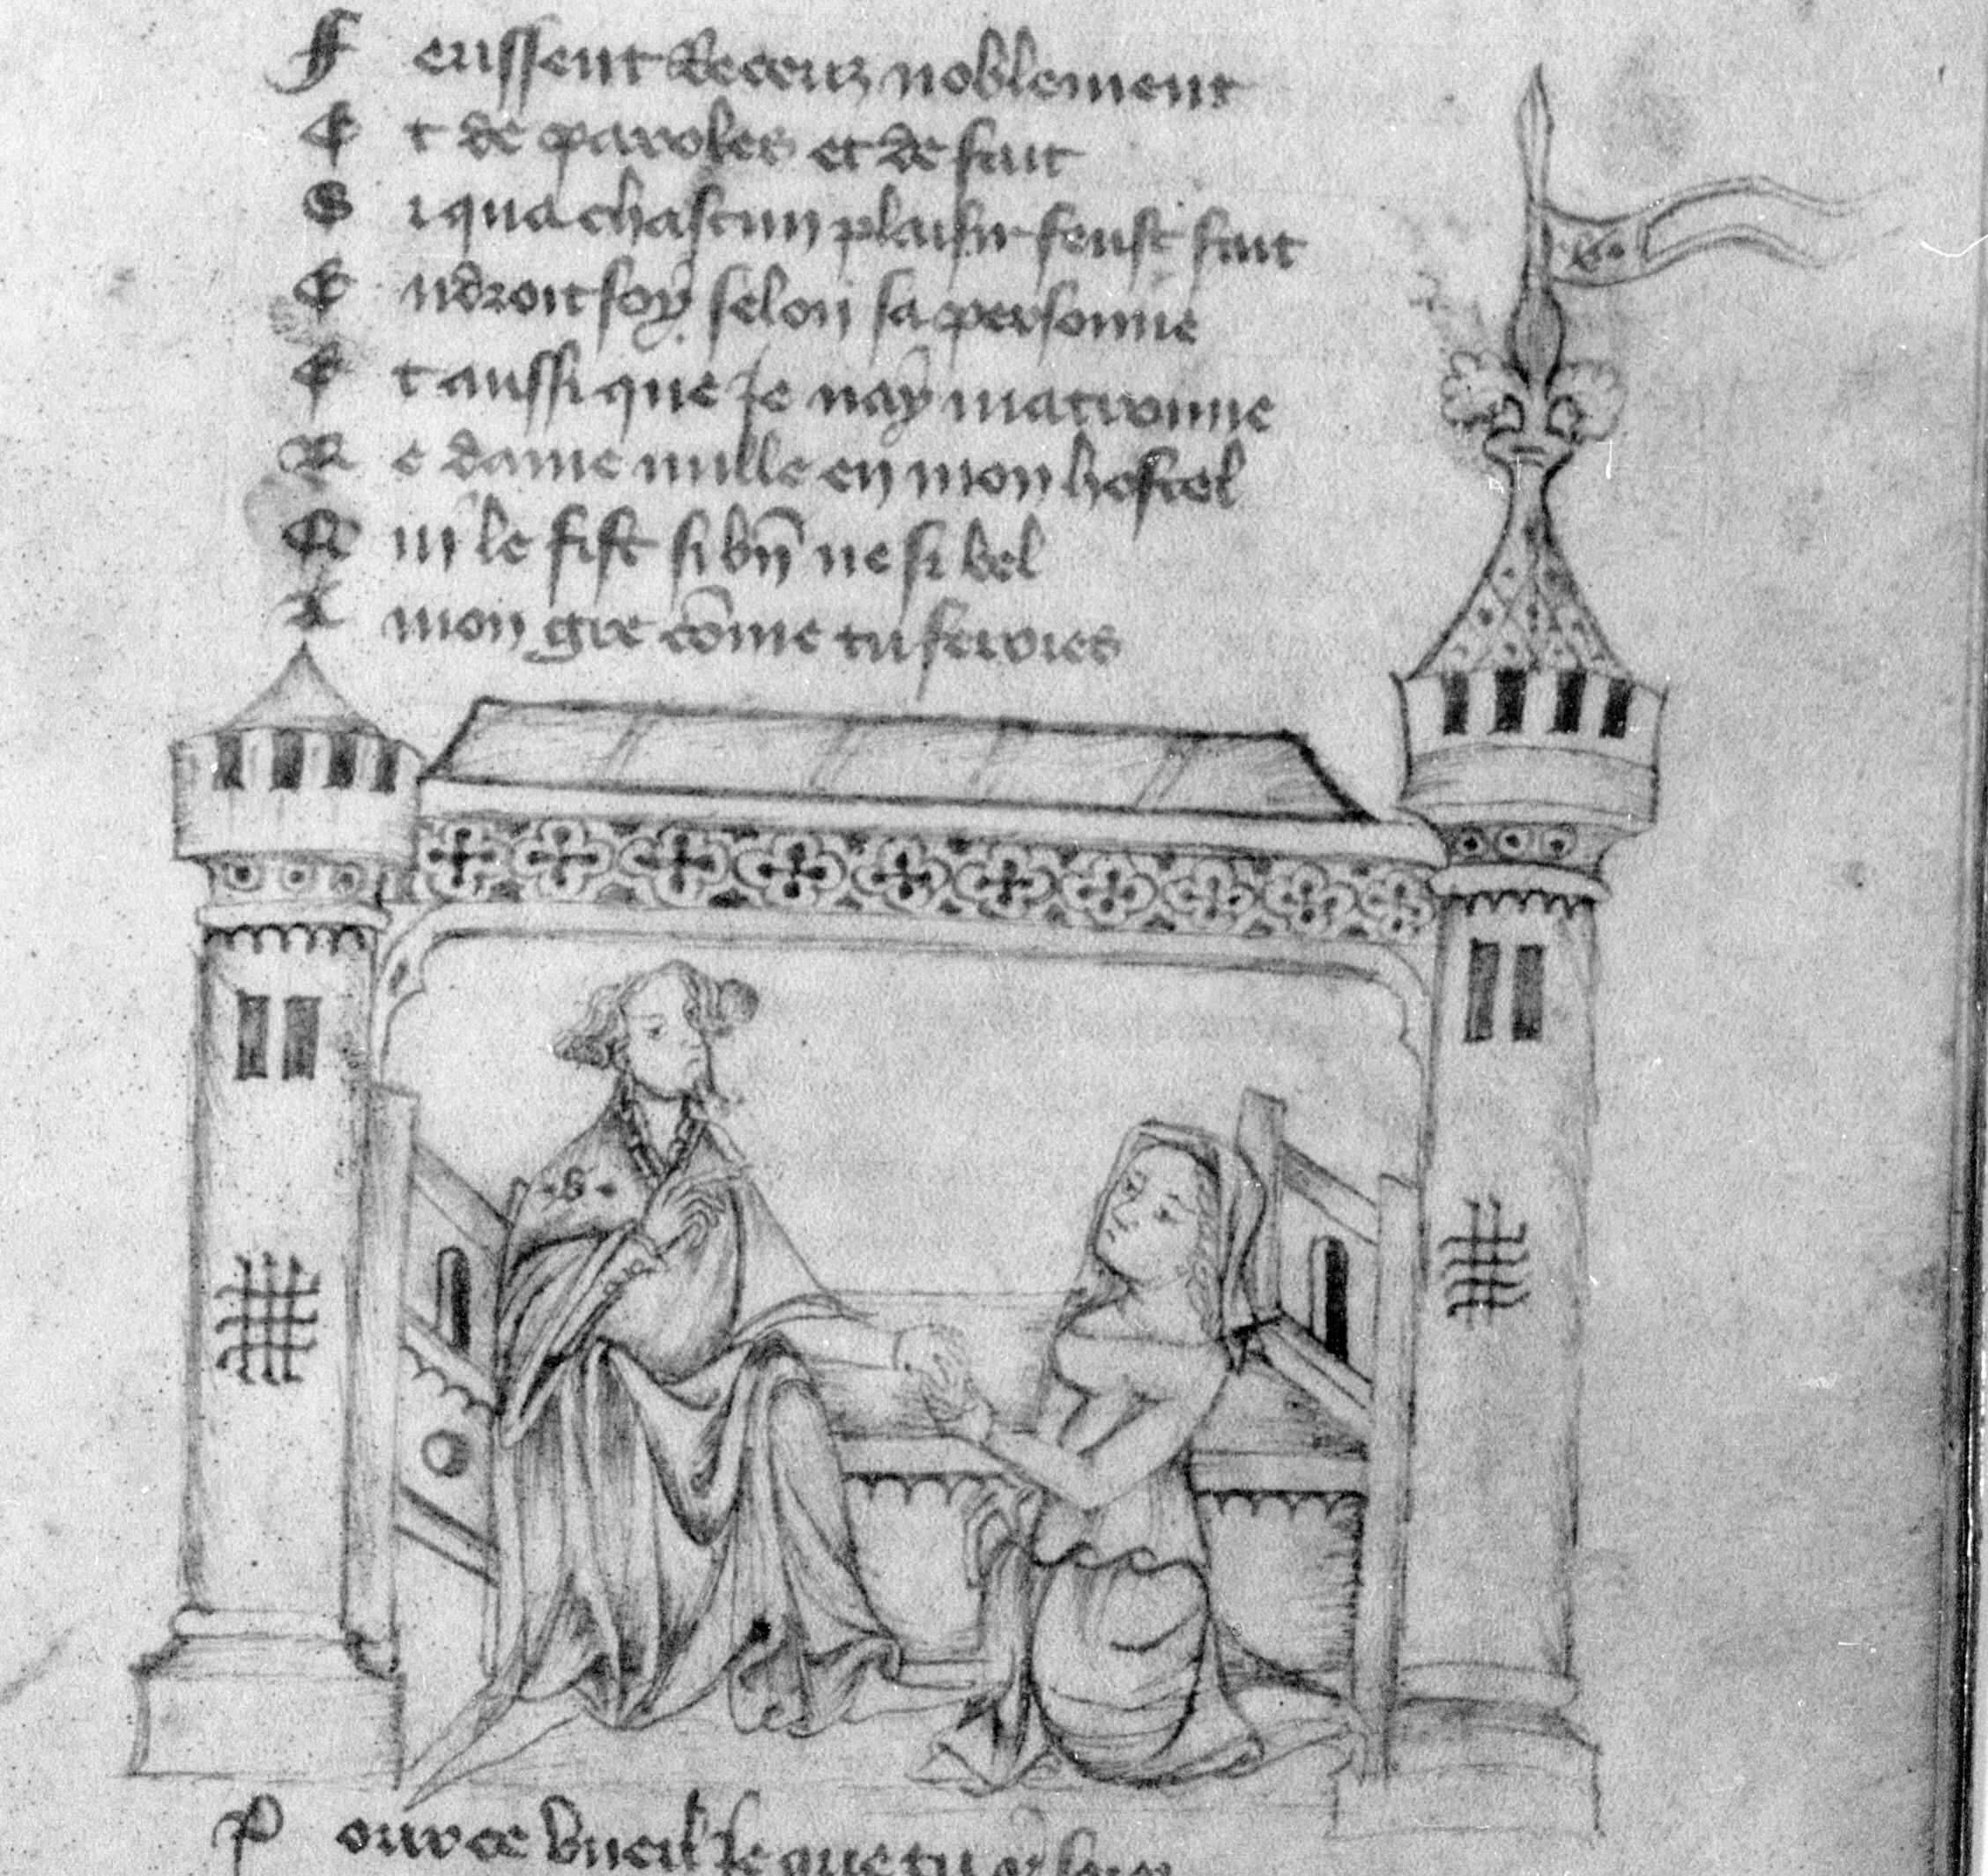 Feussent Receuz noblement
Et de paroles et de fait
Si qua chascun plaisir feust fait
Endroit soy selon sa personne
Et aussi que Je nay matronne
Ne dame nulle en mon hostel
Qui le fist si bn̄ ne si bel
A mon gre cōme tu feroies
·S·
Pour ce vueil Je que tu